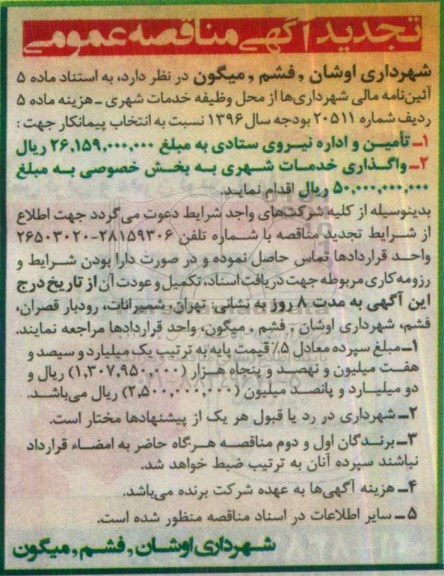 تجدید آگهی مناقصه عمومی
شهرداری اوشان , فشم , میگون در نظر دارد، به استناد ماده ۵
آئین‌نامه مالی شهرداری‌ها از محل وظیفه خدمات شهری ـ هزینه ماده ۵
ردیف شماره ۲۰۵۱۱ بودجه سال ۱۳۹۶ نسبت به انتخاب پیمانکار جهت :
۱ـ تأمین و اداره نیروی ستادی به مبلغ ۲۶,۱۵۹,۰۰۰,۰۰۰ ریال
۲ـ واگذاری خدمات شهری به بخش خصوصی به مبلغ
۵۰,۰۰۰,۰۰۰,۰۰۰ ریال اقدام نماید.
بدینوسیله از کلیه شرکت‌های واجد شرایط دعوت می‌گردد جهت اطلاع
از شرایط تجدید مناقصه با شماره تلفن ۲۸۱۵۹۳۰۶-۲۶۵۰۳۰۲۰
واحد قراردادها تماس حاصل نموده و در صورت دارا بودن شرایط و
رزومه کاری مربوطه جهت دریافت اسناد، تکمیل و عودت آن از تاریخ درج
این آگهی به مدت ۸ روز به نشانی: تهران، شمیرانات، رودبار قصران،
فشم، شهرداری اوشان , فشم , میگون، واحد قراردادها مراجعه نمایند.
۱ـ مبلغ سپرده معادل ۵٪ قیمت پایه به ترتیب یک میلیارد و سیصد و
هفت میلیون و نهصد و پنجاه هزار (۱,۳۰۷,۹۵۰,۰۰۰) ریال و
دو میلیارد و پانصد میلیون (۲,۵۰۰,۰۰۰,۰۰۰) ریال می‌باشد.
۲ـ شهرداری در رد یا قبول هر یک از پیشنهادها مختار است.
۳ـ برندگان اول و دوم مناقصه هرگاه حاضر به امضاء قرارداد
نباشند سپرده آنان به ترتیب ضبط خواهد شد.
۴ـ هزینه آگهی‌ها به عهده شرکت برنده می‌باشد.
۵ـ سایر اطلاعات در اسناد مناقصه منظور شده است.
شهرداری اوشان , فشم , میگون